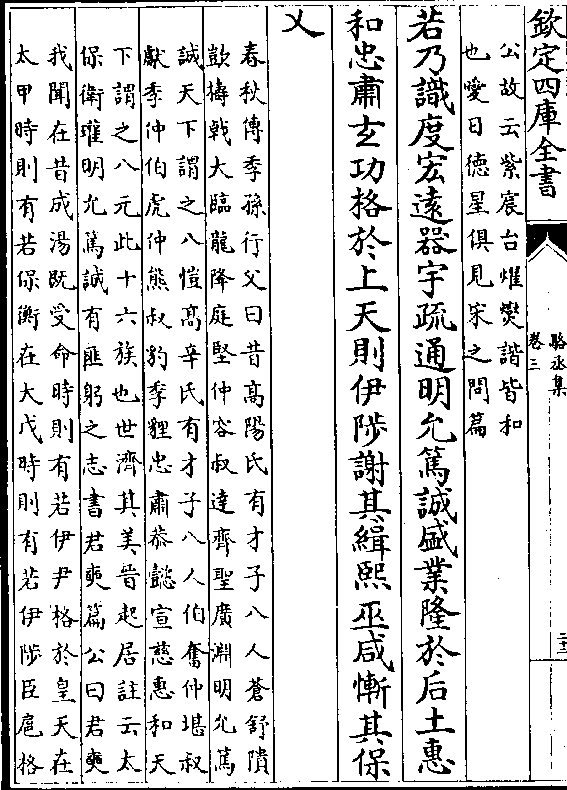 欽定四庫全書
駱丞集
卷三
二十二
公故云紫宸台燿爕諧皆和
也愛日德星俱見宋之問篇
若乃識度宏遠器宇疏通明允篤誠盛業隆於后土惠
和忠肅玄功格於上天則伊陟謝其緝熙巫咸慚其保
乂
春秋傳季孫行父曰昔高陽氏有才子八人蒼舒隤
敳檮戭大臨龍降庭堅仲容叔達齊聖廣淵明允篤
誠天下謂之八愷高辛氏有才子八人伯奮仲堪叔
獻季仲伯虎仲熊叔豹季貍忠肅恭懿宣慈惠和天
下謂之八元此十六族也世濟其美晉起居註云太
保衛瓘明允篤誠有匪躬之志書君奭篇公曰君奭
我聞在昔成湯既受命時則有若伊尹格於皇天在
太甲時則有若保衡在大戊時則有若伊陟臣扈格